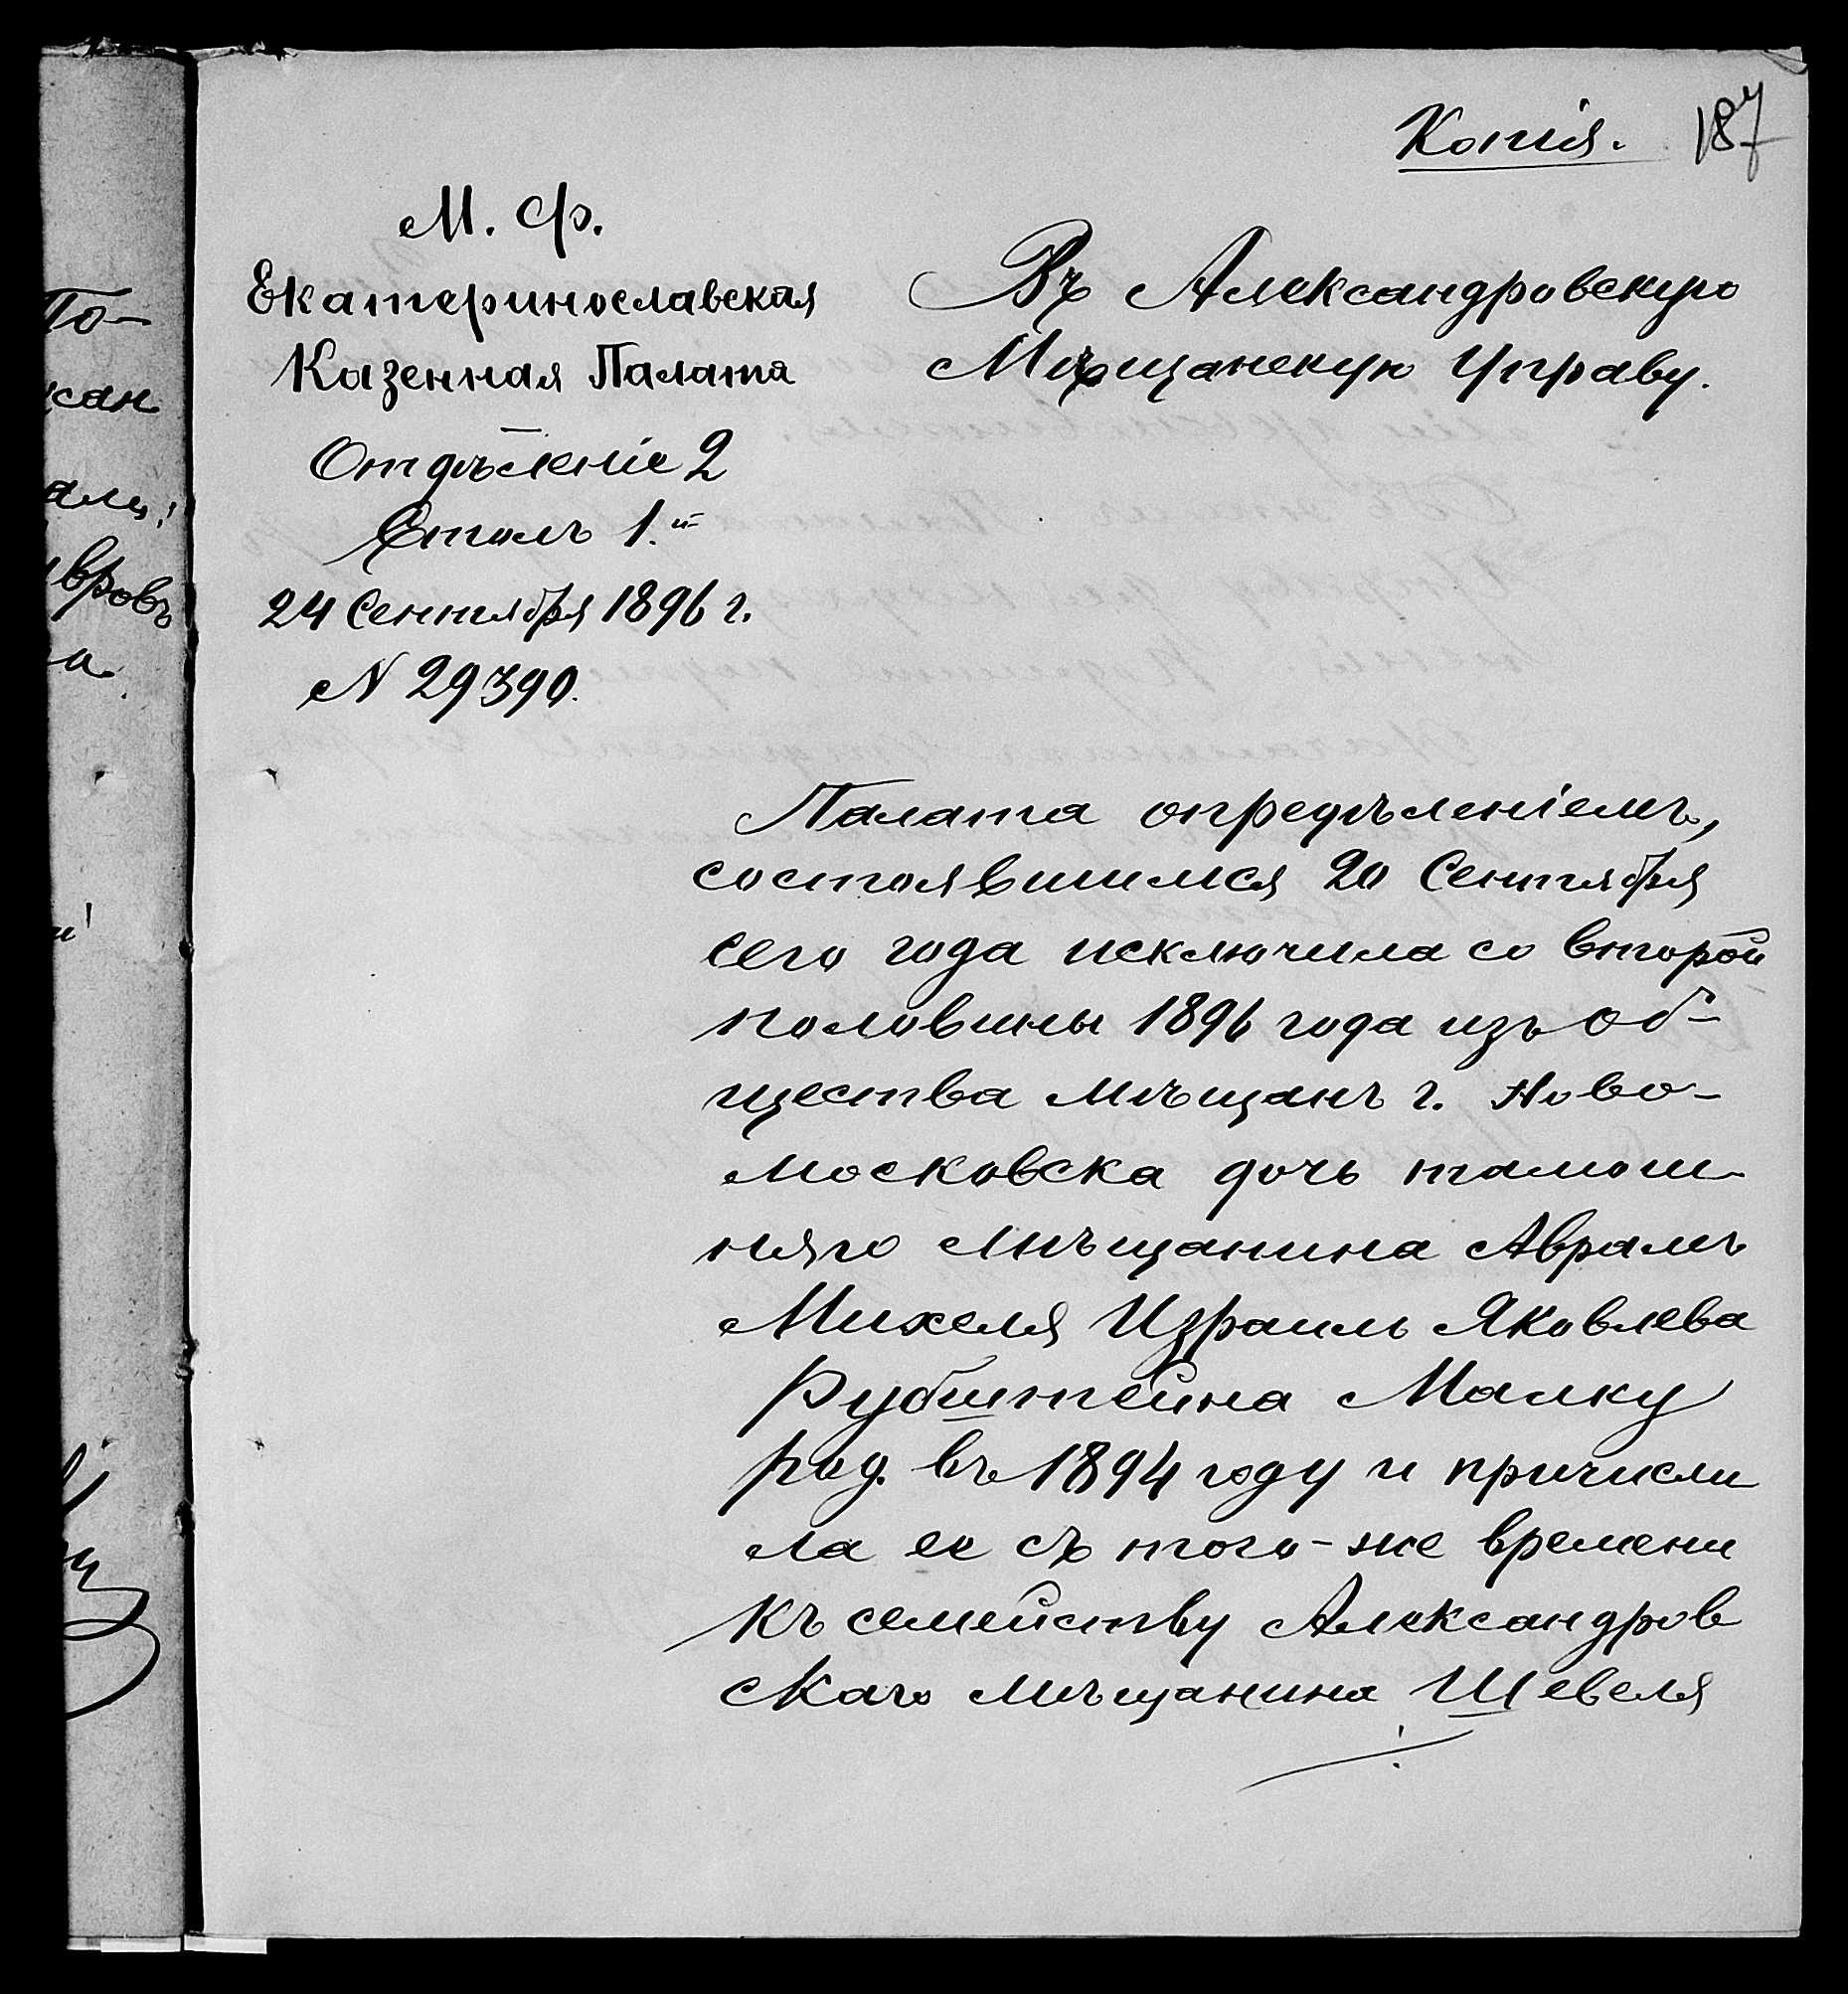 Копія. 187
М. Ф.
Екатеринославская
Казенная Палата
Отдѣленіе 2
Столъ 1.й
24 Сентября 1896 г.
N 29390.
Въ Александровскую
Мѣщанскую Управу.
Палата опредѣленіемъ,
состоявшимся 20 Сентября
сего года исключила со второй
половины 1896 года изъ об-
щества мѣщанъ г. Ново-
московска дочь тамош-
няго мѣщанина Аврамъ
Михеля Израиль Яковлева
Рубштейна Малку
род. въ 1894 году и причисли
ла ее съ того-же времени
къ семейству Александров
скаго мѣщанина Шевеля
То-
сан
вровъ
а